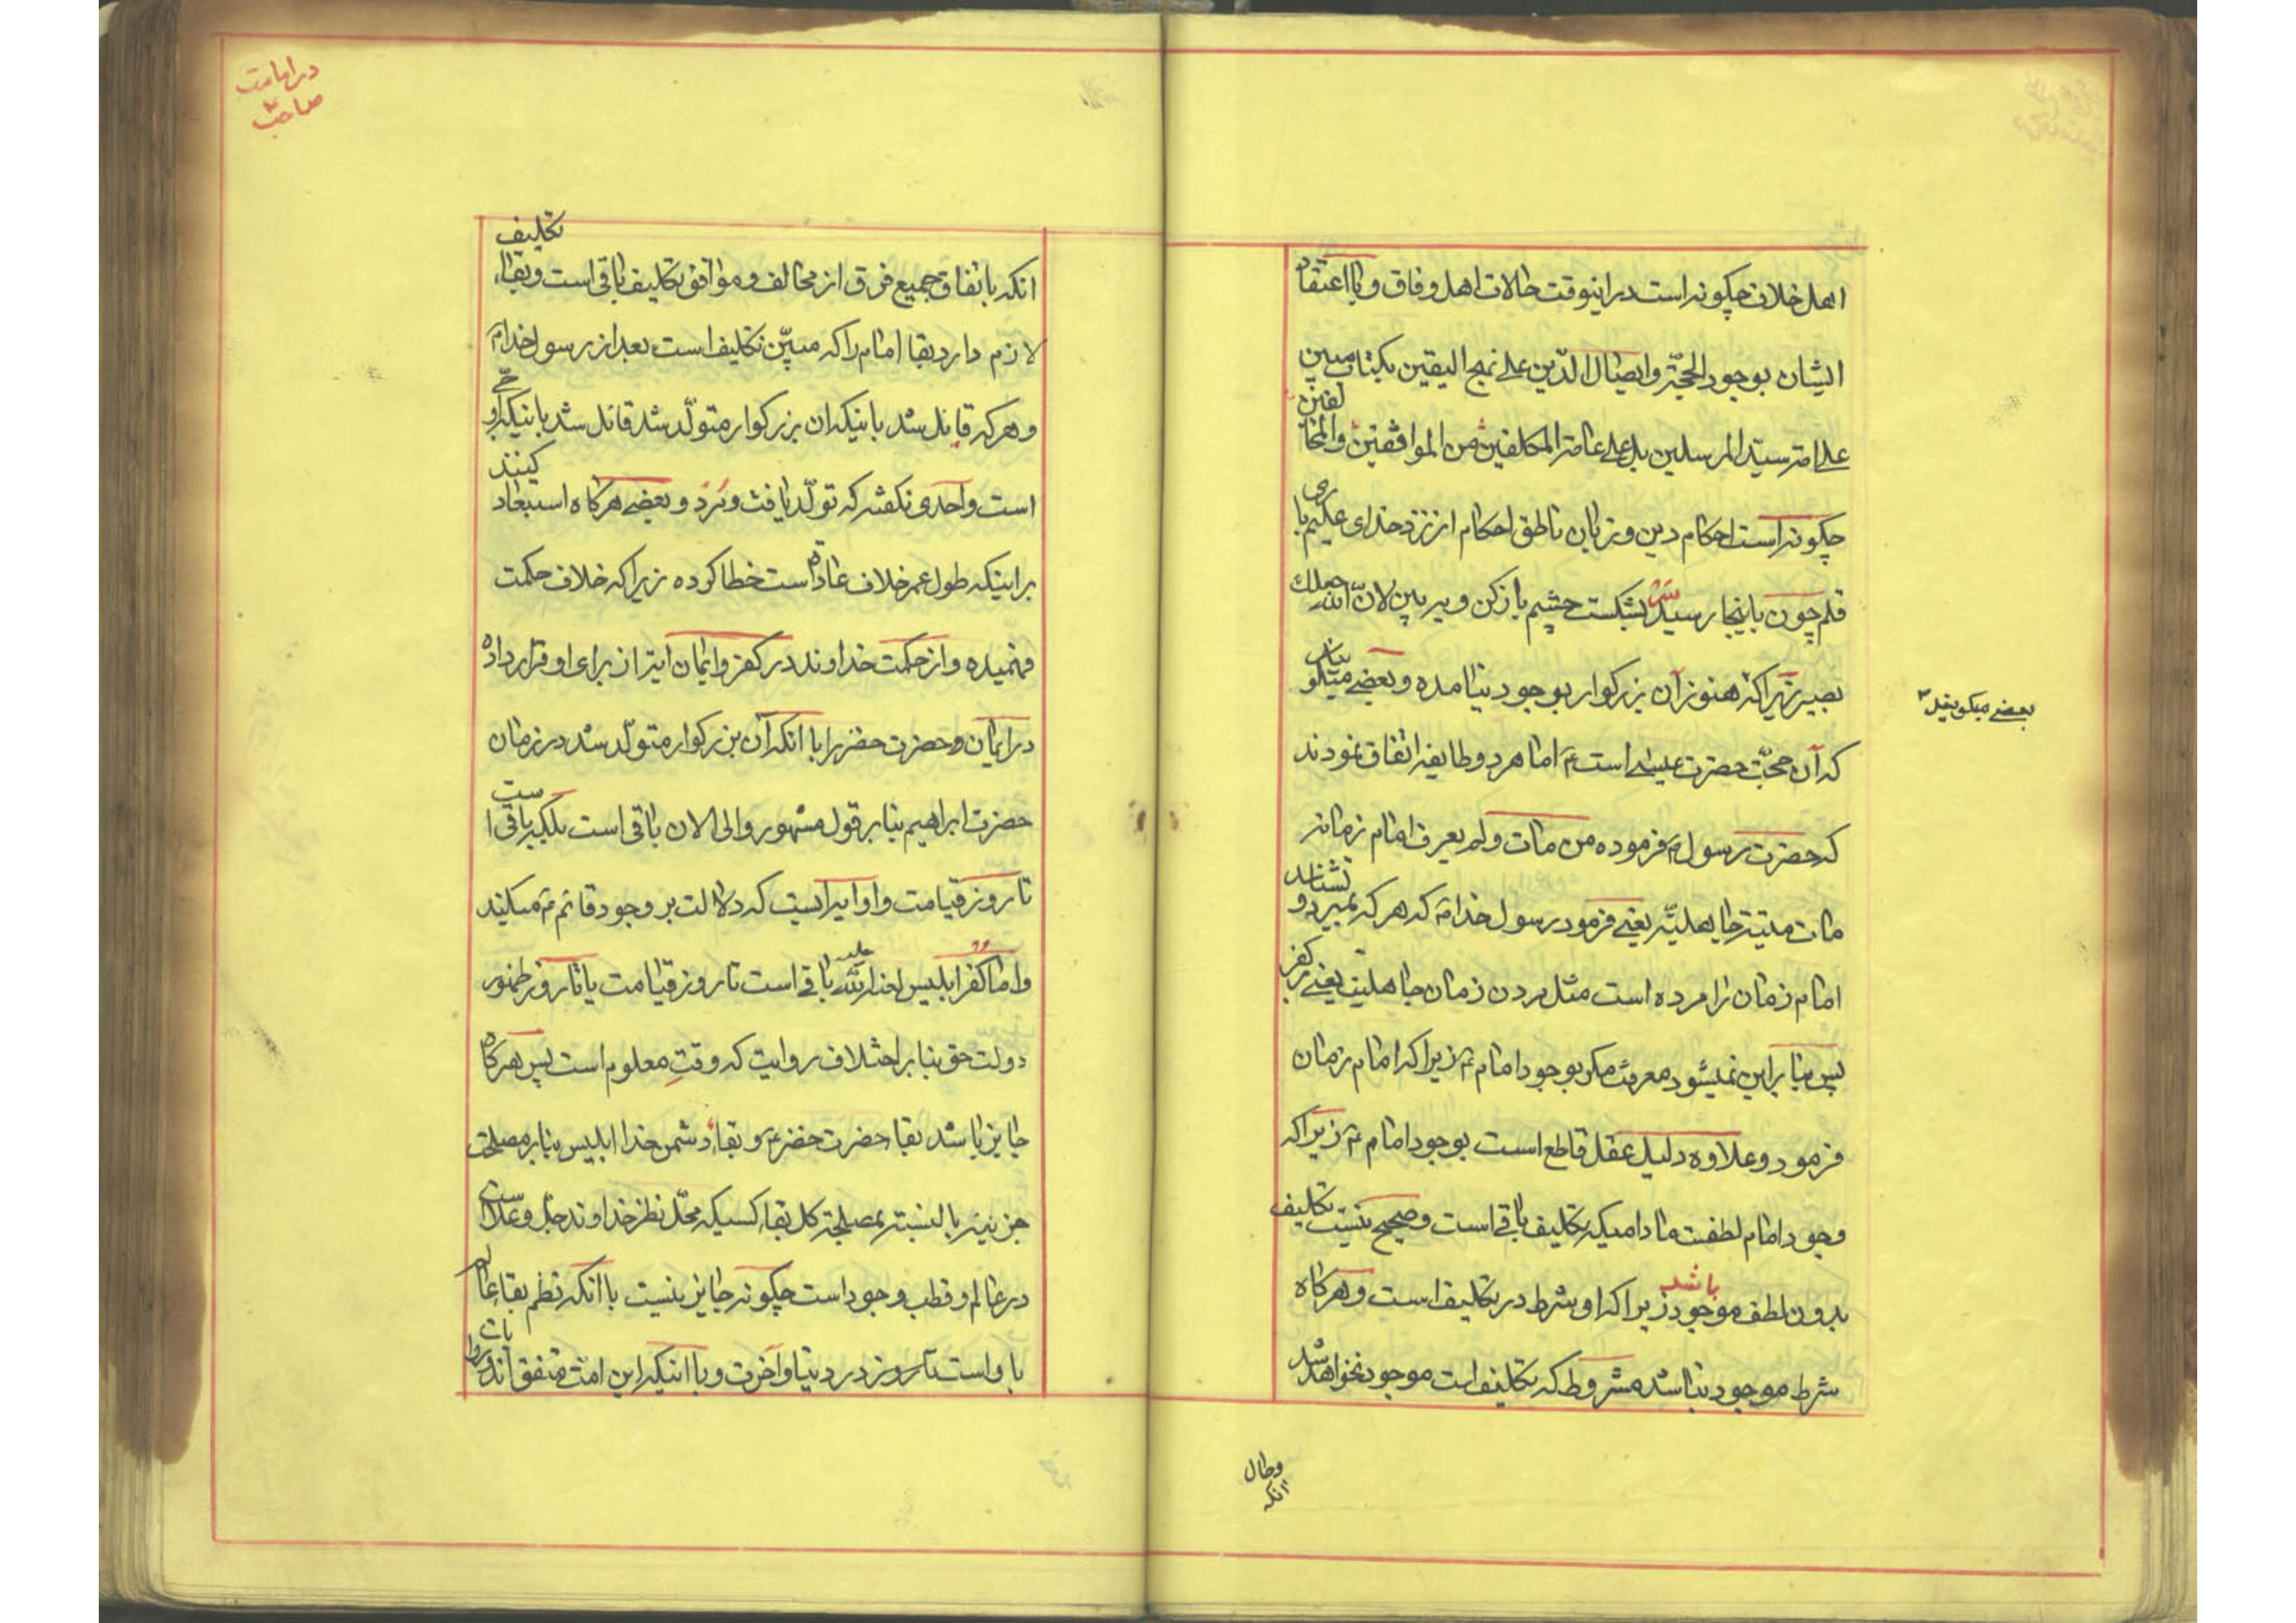 اهل خلاف چگونه است در اینوقت حالات اهل وفاق و با اعتقاد
ایشان بوجود الحجة و ایصال الدّین علی نهج الیقین بکتاب مبین
علی امة سیّد المرسلین بل علی عامة المکلفین من الموافقین و المخالفین
چگونه است احکام دین و زبان ناطق احکام از نزد خدای علیم باری
قلم چون باینجا رسید سرش بشکست چشم باز کن و ببین لانّ الله جعلك
بصیر زیراکه هنوز آن بزرکوار بوجود نیامده و بعضی میگویند
بعضی میگویند
که آن حجّت حضرت عیسی است ع اما هر دو طایفه اتفاق نمودند
که حضرت رسول ص فرموده من مات و لم یعرف امام زمانه
مات میتة جاهلیّه یعنی فرمود رسول خدا ص که هر که بمیرد و نشناسد
امام زمان را مرده است مثل مردن زمان جاهلیت یعنی بر کفر
پس بنا بر این نمیشود معرفت مکر بوجود امام ع زیراکه امام زمان
فرمود و علاوه دلیل عقل قاطع است بوجود امام ع زیراکه
وجود امام لطفست مادامیکه تکلیف باقی است و صحیح نیست تکلیف
بدون لطف موجود باشد زیراکه او شرط در تکلیف است و هرکاه
شرط موجود نباشد مشروط که تکلیف است موجود نخواهد شد
وحال
آنکه
در امامت
صاحب ع
انکه باتفاق جمیع فرق از مخالف و موافق تکلیف باقی است و بقاء تکلیف
لازم دارد بقا امام را که مبیّن تکلیف است بعد از رسول خدا ص
و هر که قائل شد باینکه ان بزرکوار متولّد شد قائل شد باینکه او حیّ
است و احدی نکفته که تولّد یافت و مُرد و بعضی هرکاه استبعاد کینند
بر اینکه طول عمر خلاف عاده است خطا کرده زیراکه خلاف حکمت
فهمیده و از حکمت خداوند در کفر و ایمان اینرا از برای او قرار داده
در ایمان و حضرت خضر را با انکه آن بزرکوار متولّد شد در زمان
حضرت ابراهیم بنا بر قول مشهور و الی الان باقی است بلکه باقی است
تا روز قیامت و او آیه ایست که دلالت بر وجود قائم ع میکند
و اما کفر ابلیس لعنة الله علیه باقی است تا روز قیامت یا تا روز ظهور
دولت حق بنا بر اختلاف روایت که وقتِ معلوم است پس هرکاه
جایز باشد بقاء حضرت خضر ع و بقاءِ دشمن خدا ابلیس بنابر مصلحت
جزئیه بالنسبه بمصلحة کل بقاء کسیکه محلّ نظر خداوند جل و علا است
در عالم و قطب وجود است چگونه جایز نیست با انکه نظم بقاء عالم
با و است تا روز در دنیا و آخرت و با اینکه این امّت متفق اند و روایات